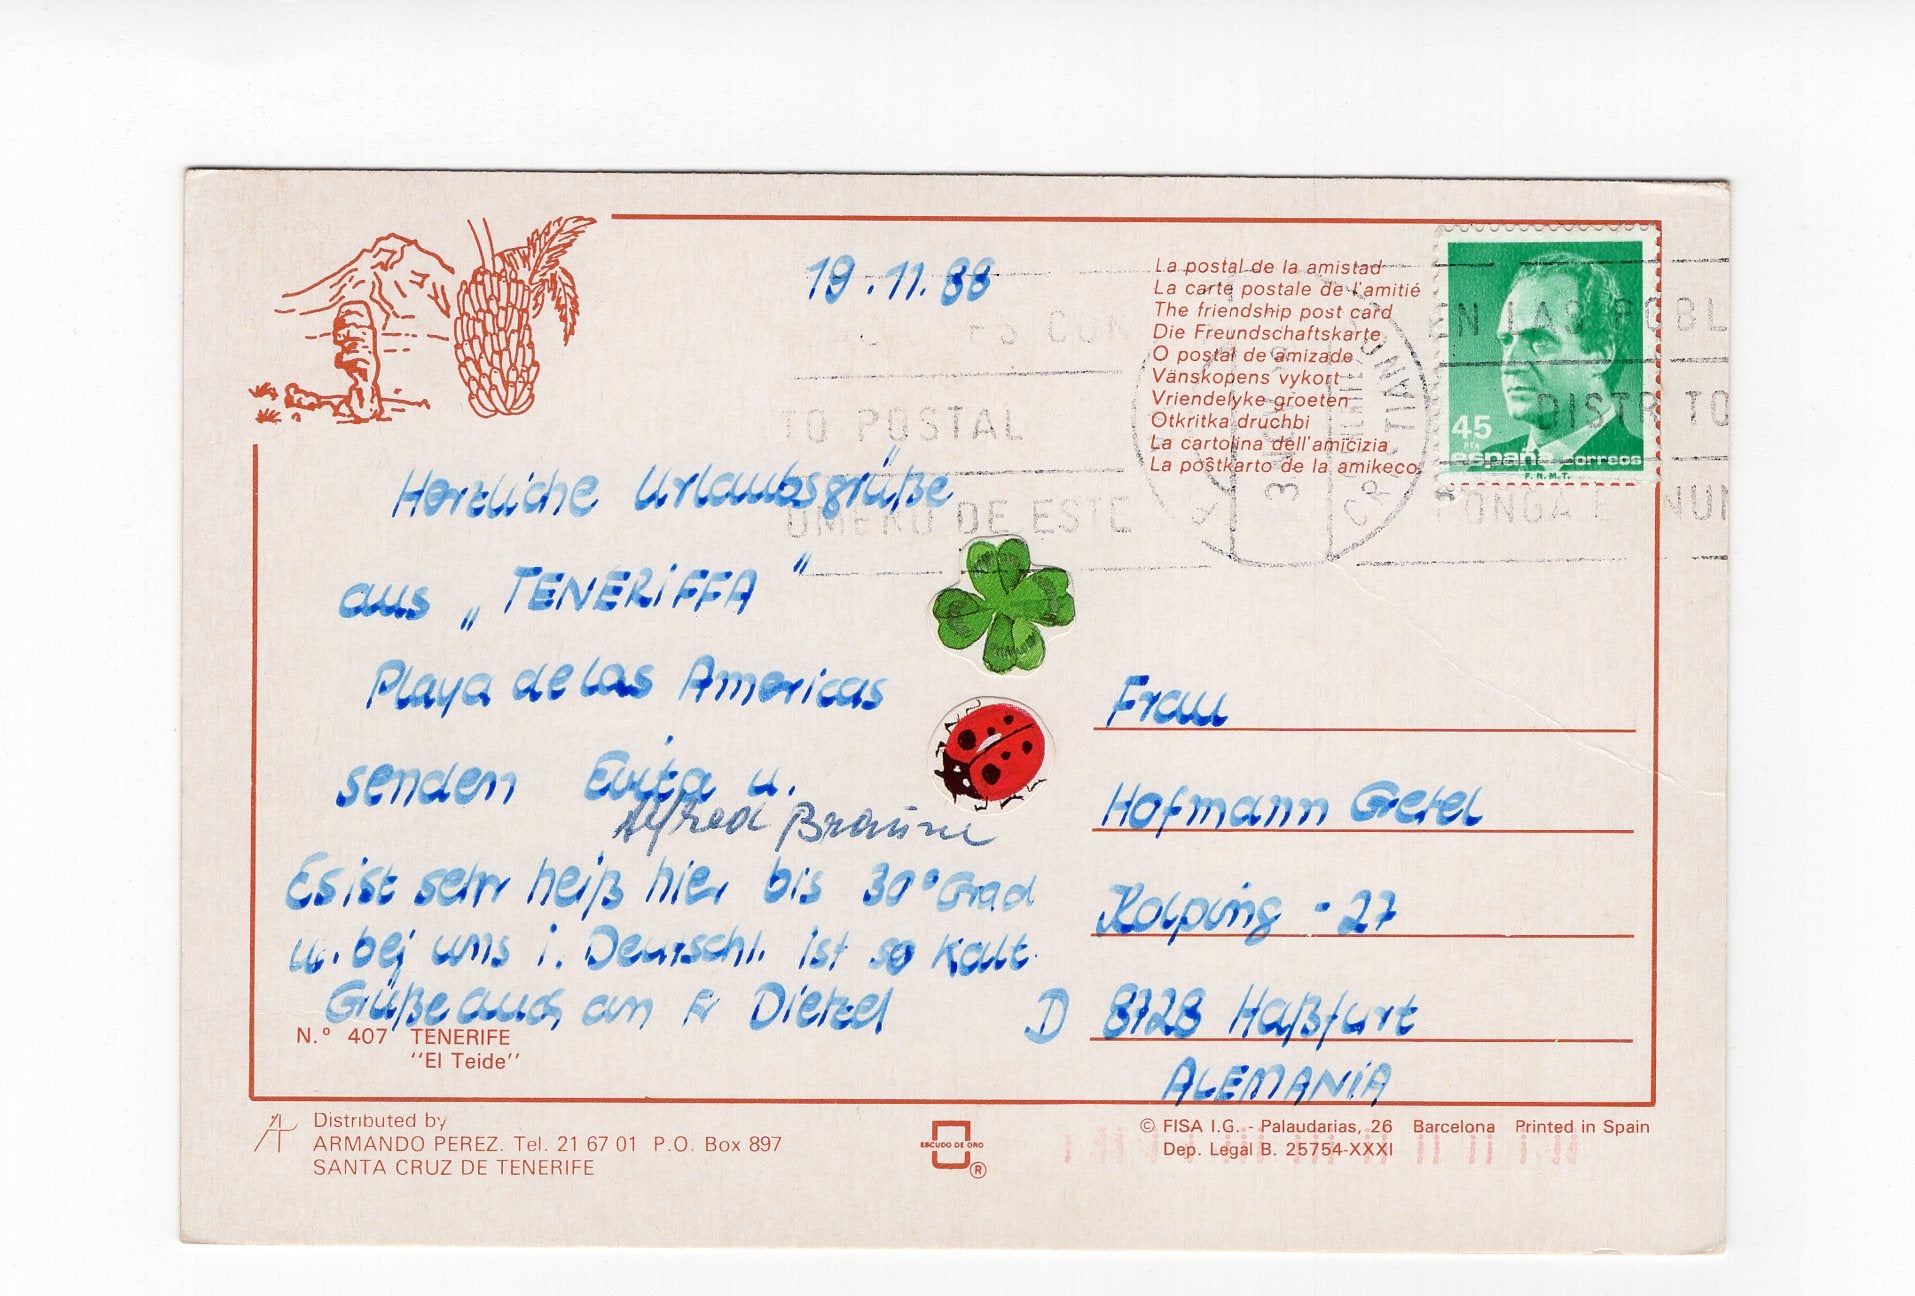 19.11.88
La postal de la amistad
La carte postale de l'amitié
The friendship post card
Die Freundschaftskarte
O postal de amizade
Vänskopens vykort
Vriendelyke groeten
Otkritka druchbi
La cartolina dell'amicizia
La poŝtkarto de la amikeco
45
PTA
españa correos
F.N.M.T.
EN LAS POBL
DISTR TO
PONGA E NUM
TO POSTAL
UMERO DE ESTE
Herzliche Urlaubsgrüße
aus „TENERiFFA"
Playa de las Americas
senden Evita u.
Alfred Braun
Es ist sehr heiß hier bis 30° Grad
u. bei uns i. Deutschl. ist so kalt.
Grüße auch an Fr Dietzel
Frau
Hofmann Gretel
Kolping - 27
D 8728 Haßfurt
ALEMANiA
N.° 407 TENERIFE
"El Teide"
Distributed by
ARMANDO PEREZ. Tel. 21 67 01 P.O. Box 897
SANTA CRUZ DE TENERIFE
ESCUDO DE ORO
®
© FISA I.G. - Palaudarias, 26 Barcelona Printed in Spain
Dep. Legal B. 25754-XXXI